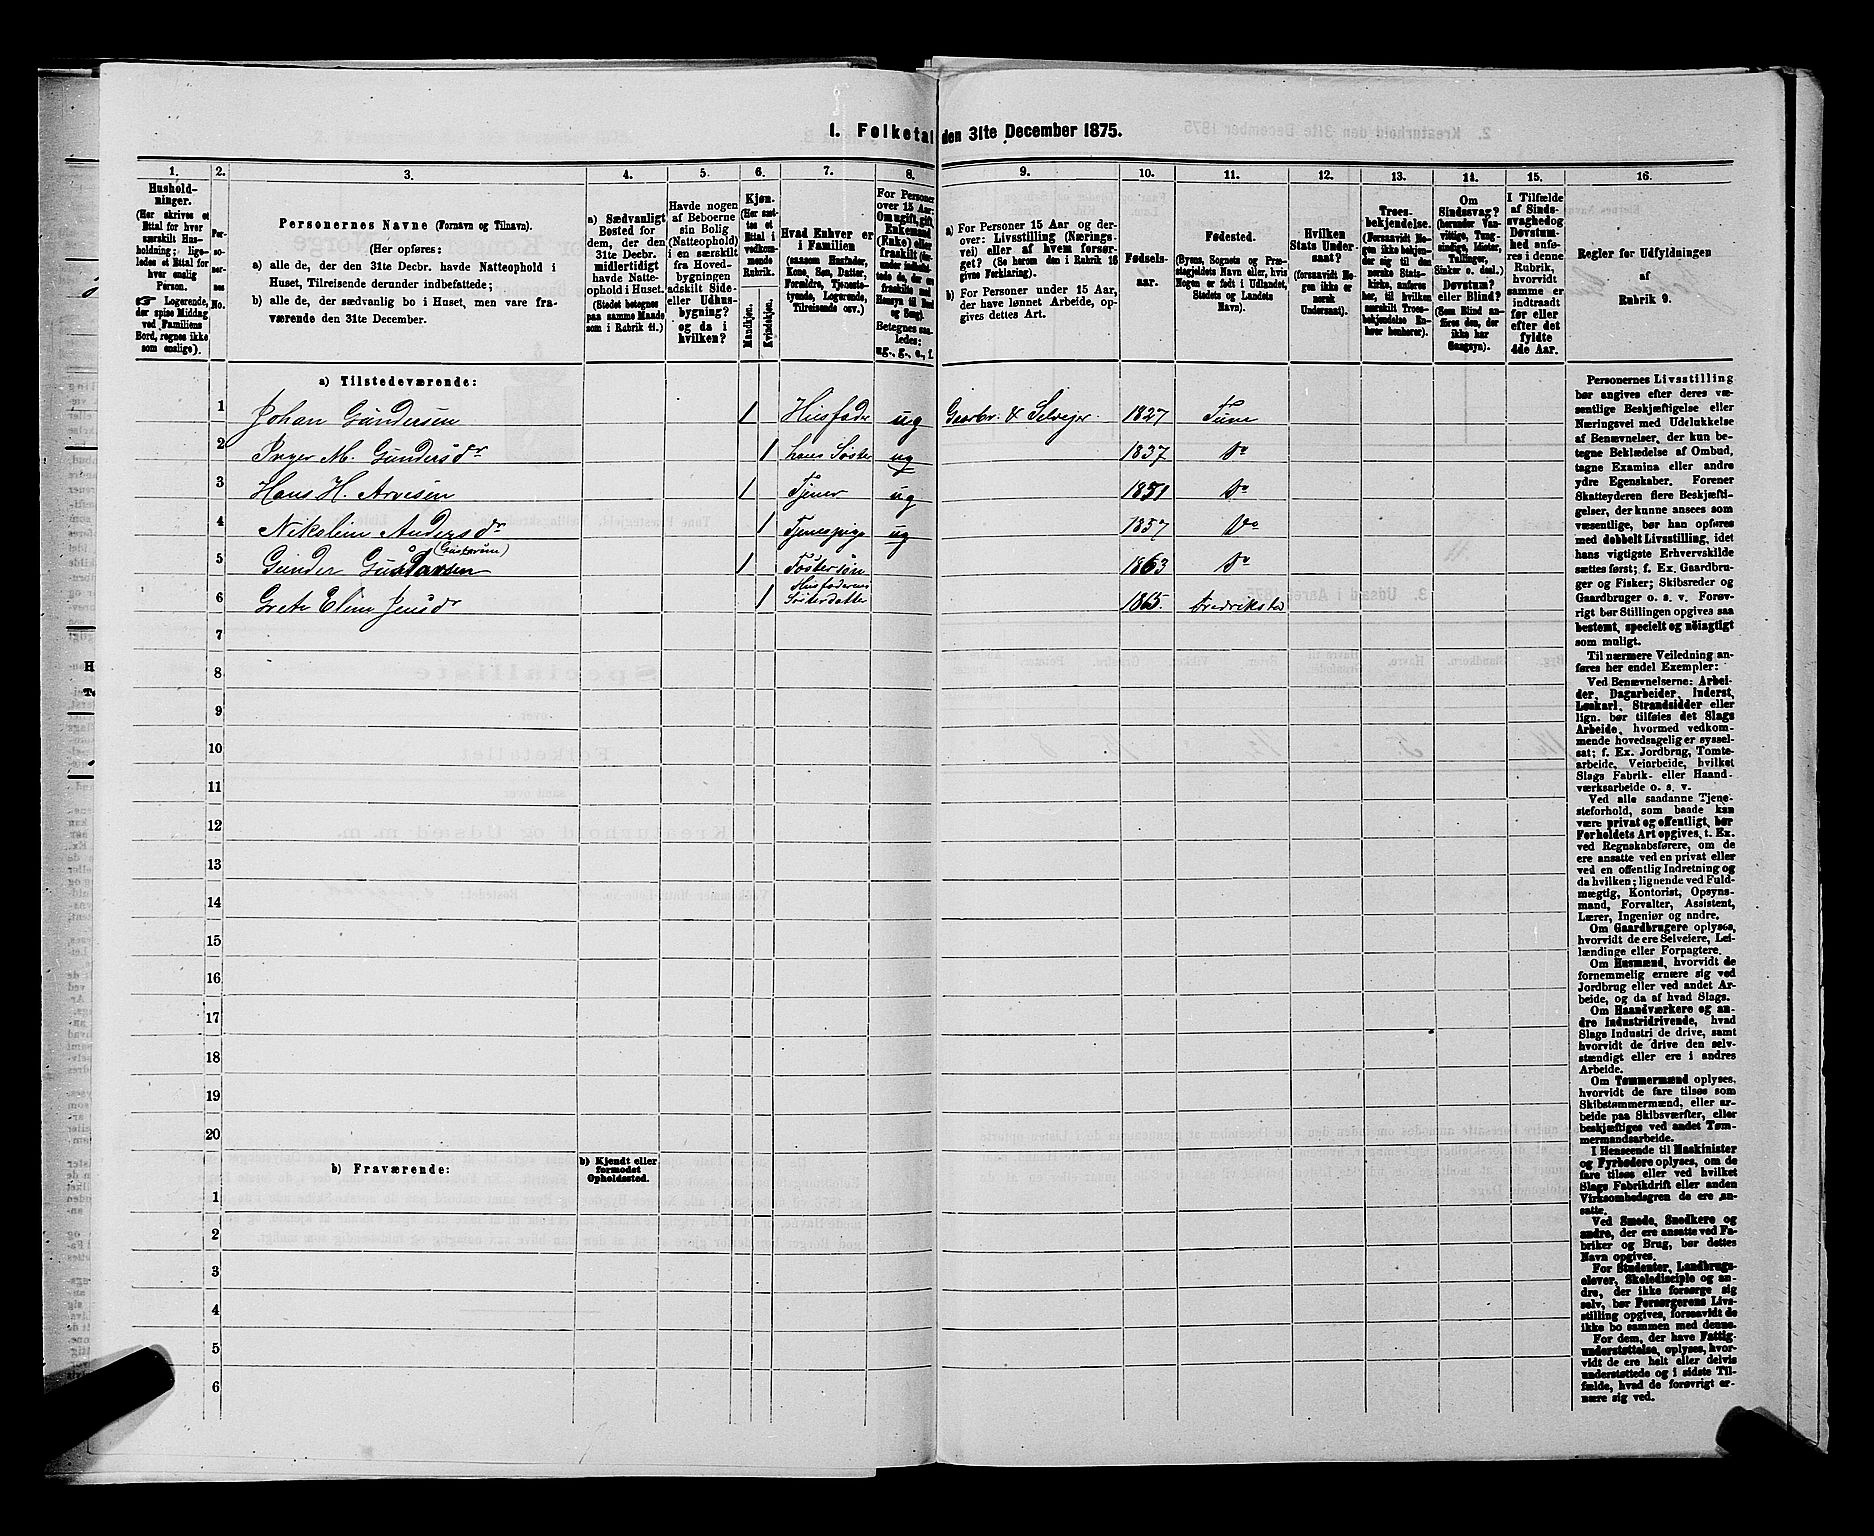 1. Folketal den 31te December 1875.
1. 2. 3. 4. 5. 6. 7. 8. 9. 10. 11. 12. 13. 14. 15. 16.
Hushold-
ninger.
(Her skrives et
Ettal for hver
særskilt Hus-
holdning; lige-
ledes et Ettal for
hver enslig
Person.
☞ Logerende,
der spise Middag
ved Familiens
Bord, regnes ikke
som enslige).
Per-
so-
ner-
nes
No.
Personernes Navne (Fornavn og Tilnavn).
(Her opføres:
a) alle de, der den 31te Decbr. havde Natteophold i
Huset, Tilreisende derunder indbefattede;
b) alle de, der sædvanlig bo i Huset, men vare fra-
værende den 31te December.
a) Sædvanligt
Bosted for
dem, der den
31te Decbr.
midlertidigt
havde Natte-
ophold i Huset.
(Stedet betegnes
paa samme Maade
som i Rubrik 11.)
Havde nogen
af Beboerne
sin Bolig
(Natteophold)
i en særskilt
fra Hoved-
bygningen
adskilt Side-
eller Udhus-
bygning?
og da i
hvilken?
Kjøn.
(Her sæt-
tes et
Ettal i
vedkom-
mende
Rubrik.
Mandkjøn.
Kvindekjøn.
Hvad Enhver er
i Familien
(saasom Husfader,
Kone, Søn, Datter,
Forældre, Tjeneste-
tyende, Logerende,
Tilreisende osv.)
For Personer
over 15 Aar:
Om ugift, gift,
Enkemand
(Enke) eller
fraskilt
Betegnes saa-
ledes:
ug., g., e., f.
a) For Personer 15 Aar og der-
over: Livsstilling (Nærings-
vei) eller af hvem forsør-
get? (Se herom den i Rubrik 16
givne Forklaring).
b) For Personer under 15 Aar,
der have lønnet Arbeide, op-
gives dettes Art.
Fødsels-
aar.
Fødested.
(Byens, Sognets og Præ-
stegjeldets Navn eller, hvis
Nogen er født i Udlandet,
Stedets og Landets
Navn).
Hvilken
Stats Under-
saat?
(forsaavidt No-
gen ikke er
norsk
Undersaat).
Troes-
bekjendelse.
(Forsaavidt No-
gen ikke bekjen-
der sig til den
norske Stats-
kirke, anføres
her, til hvilken
særskilt Troes-
bekjendelse En-
hver henhører).
Om
Sindssvag?
(herunder Van-
vittige, Tung-
sindige, Idioter,
Tullinger,
Sinker o. desl.)
Døvstum?
eller Blind?
(Som Blind an-
føres den, der
ikke har
Gangsyn).
I Tilfælde
af Sinds-
svaghed og
Døvstum-
hed anfø-
res i denne
Rubrik,
hvorvidt
samme er
indtraadt
før eller
efter det
fyldte
4de Aar.
Regler for Udfyldningen
af
Rubrik 9.
a) Tilstedeværende:
1 Johan Gundersen 1 Husfader ug Gaardbr. & Selveier. 1827 Tune
2 Inger M. Gundersdr 1 hans Søster ug 1837 Do
3 Hans H. Arvesen 1 Tjener ug 1851 Do
4 Nikoline Andersdr 1 Tjenespige ug 1857 Do
5 Gunder Gustavsen 1 Fostersøn 1863 Do
6 Grete Eline Jensdr 1 Husfaderens Søsterdatter 1865.
7
8
9
10
11
12
13
14
15
16
17
18
19
20
b) Fraværende:
b) Kjendt eller
formodet
Opholdssted.
1
2
3
4
5
6
Personernes Livsstilling
bør angives efter deres væ-
sentlige Beskjæftigelse eller
Næringsvei med Udelukkelse
af Benævnelser, der kun be-
tegne Beklædelse af Ombud,
tagne Examina eller andre
ydre Egenskaber. Forener
Skatteyderen flere Beskjæfti-
gelser, der kunne ansees som
væsentlige, bør han opføres
med dobbelt Livsstilling, idet
hans vigtigste Erhvervskilde
sættes først; f. Ex. Gaardbru-
ger og Fisker; Skibsreder og
Gaardbruger o. s. v. Forøv-
rigt bør Stillingen opgives saa
bestemt, specielt og nøiagtigt
som muligt.
Til nærmere Veiledning an-
føres her endel Exempler:
Ved Benævnelserne: Arbei-
der, Dagarbeider, Inderst,
Løskarl, Strandsidder eller
lign. bør tilføies det Slags
Arbeide, hvormed vedkom-
mende hovedsagelig er syssel-
sat; f. Ex. Jordbrug, Tomte-
arbeide, Veiarbeide, hvilket
Slags Fabrik- eller Haand-
værksarbeide o. s. v.
Ved alle saadanne Tjene-
steforhold, som baade kan
være privat og offentligt, bør
Forholdets Art opgives, t. Ex.
ved Regnskabsførere, om de
ere ansatte ved en privat eller
ved en offentlig Indretning og
da hvilken; lignende ved Fuld-
mægtig, Kontorist, Opsyns-
mand, Forvalter, Assistent,
Lærer, Ingeniør og andre.
Om Gaardbrugere oplyses,
hvorvidt de ere Selveiere, Lei-
lændinge eller Forpagtere.
Om Husmænd, hvorvidt de
fornemmelig ernære sig ved
Jordbrug eller ved andet Ar-
beide, og da af hvad Slags.
Om Haandværkere og an-
dre Industridrivende, hvad
Slags Industri de drive, samt
hvorvidt de drive den selv-
stændigt eller ere i andres
Arbeide.
Om Tømmermænd oplyses,
hvorvidt de fare tilsøs som
Skibstømmermænd, eller ar-
beide paa Skibsværfter, eller
beskjæftiges ved andet Tøm-
mermandsarbeide.
I Henseende til Maskinister
og Fyrbødere oplyses, om de
fare tilsøs eller ved hvilket
Slags Fabrikdrift eller anden
Virksomhedsgren de ere an-
satte.
Ved Smede, Snedkere og
andre, der ere ansatte ved Fa-
briker og Brug, bør dettes
Navn opgives.
For Studenter, Landbrugs-
elever, Skoledisciple og an-
dre, der ikke forsørge sig
selv, bør Forsørgerens Livs-
stilling opgives, forsaavidt de
ikke bo sammen med denne.
For dem, der have Fattig-
understøttelse, oplyses, hvor-
vidt de ere helt eller delvis
understøttede og i sidste Til-
fælde, hvad de forøvrigt er-
nære sig ved.